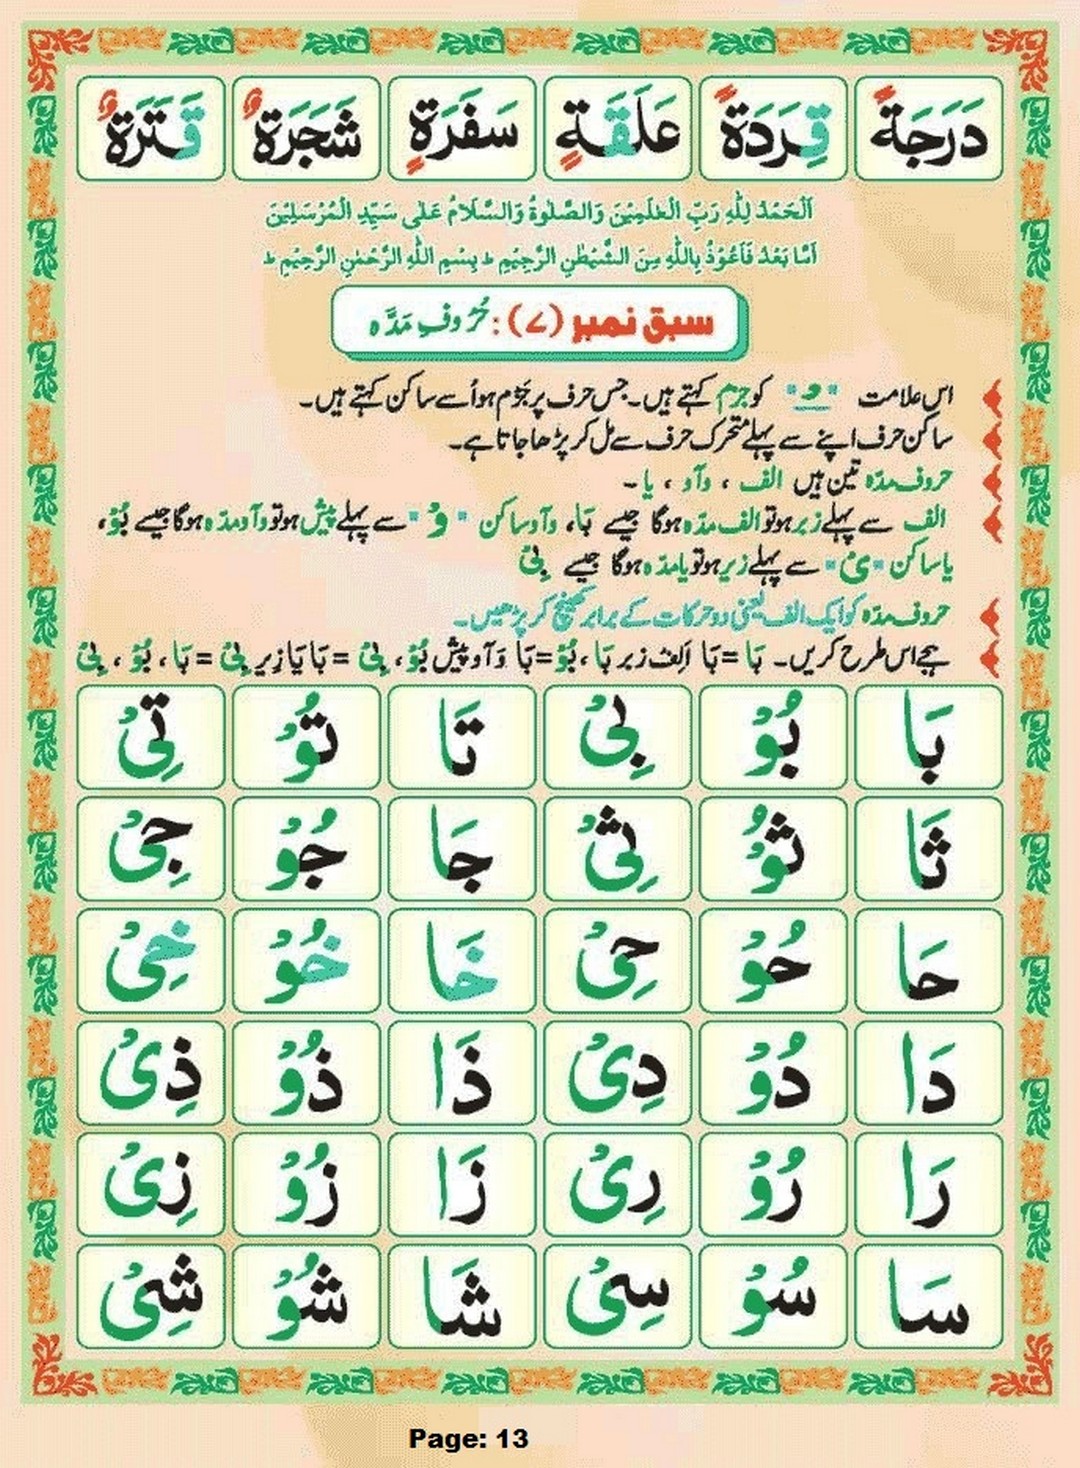 دَرَجَةً قِرَدَةً عَلَقَةٍ سَفَرَةٍ شَجَرَةٌ قَتَرَةٌ
اَلْحَمْدُ لِلّٰهِ رَبِّ الْعٰلَمِیْنَ وَالصَّلٰوةُ وَالسَّلَامُ عَلٰی سَیِّدِ الْمُرْسَلِیْنَ
اَمَّا بَعْدُ فَاَعُوْذُ بِاللّٰهِ مِنَ الشَّیْطٰنِ الرَّجِیْمِ ط بِسْمِ اللّٰهِ الرَّحْمٰنِ الرَّحِیْمِ ط
سبق نمبر (۷) : حُرُوفِ مَدَّہ
اس علامت " ـْ " کو جزم کہتے ہیں۔ جس حرف پر جَزْم ہو اُسے ساکن کہتے ہیں۔
ساکن حرف اپنے سے پہلے مُتَحَرِّک حرف سے مل کر پڑھا جاتا ہے۔
حروف مدّہ تین ہیں الف ، وآو ، یا ۔
الف سے پہلے زبر ہو تو الف مدّہ ہوگا جیسے بَا، وآو ساکن " وْ " سے پہلے پیش ہو تو وآو مدّہ ہوگا جیسے بُوْ،
یا ساکن " یْ " سے پہلے زیر ہو تو یا مدّہ ہوگا جیسے بِیْ
حروف مدّہ کو ایک الف یعنی دو حرکات کے برابر کھینچ کر پڑھیں۔
ہجے اس طرح کریں۔ بَا = بَا اَلِفْ زبر بَا ، بُوْ = بَا وَآو پیش بُوْ ، بِیْ = بَا یَا زِیر بِیْ = بَا ، بُوْ ، بِیْ
بَا بُوْ بِیْ تَا تُوْ تِیْ
ثَا ثُوْ ثِیْ جَا جُوْ جِیْ
حَا حُوْ حِیْ خَا خُوْ خِیْ
دَا دُوْ دِیْ ذَا ذُوْ ذِیْ
رَا رُوْ رِیْ زَا زُوْ زِیْ
سَا سُوْ سِیْ شَا شُوْ شِیْ
Page: 13